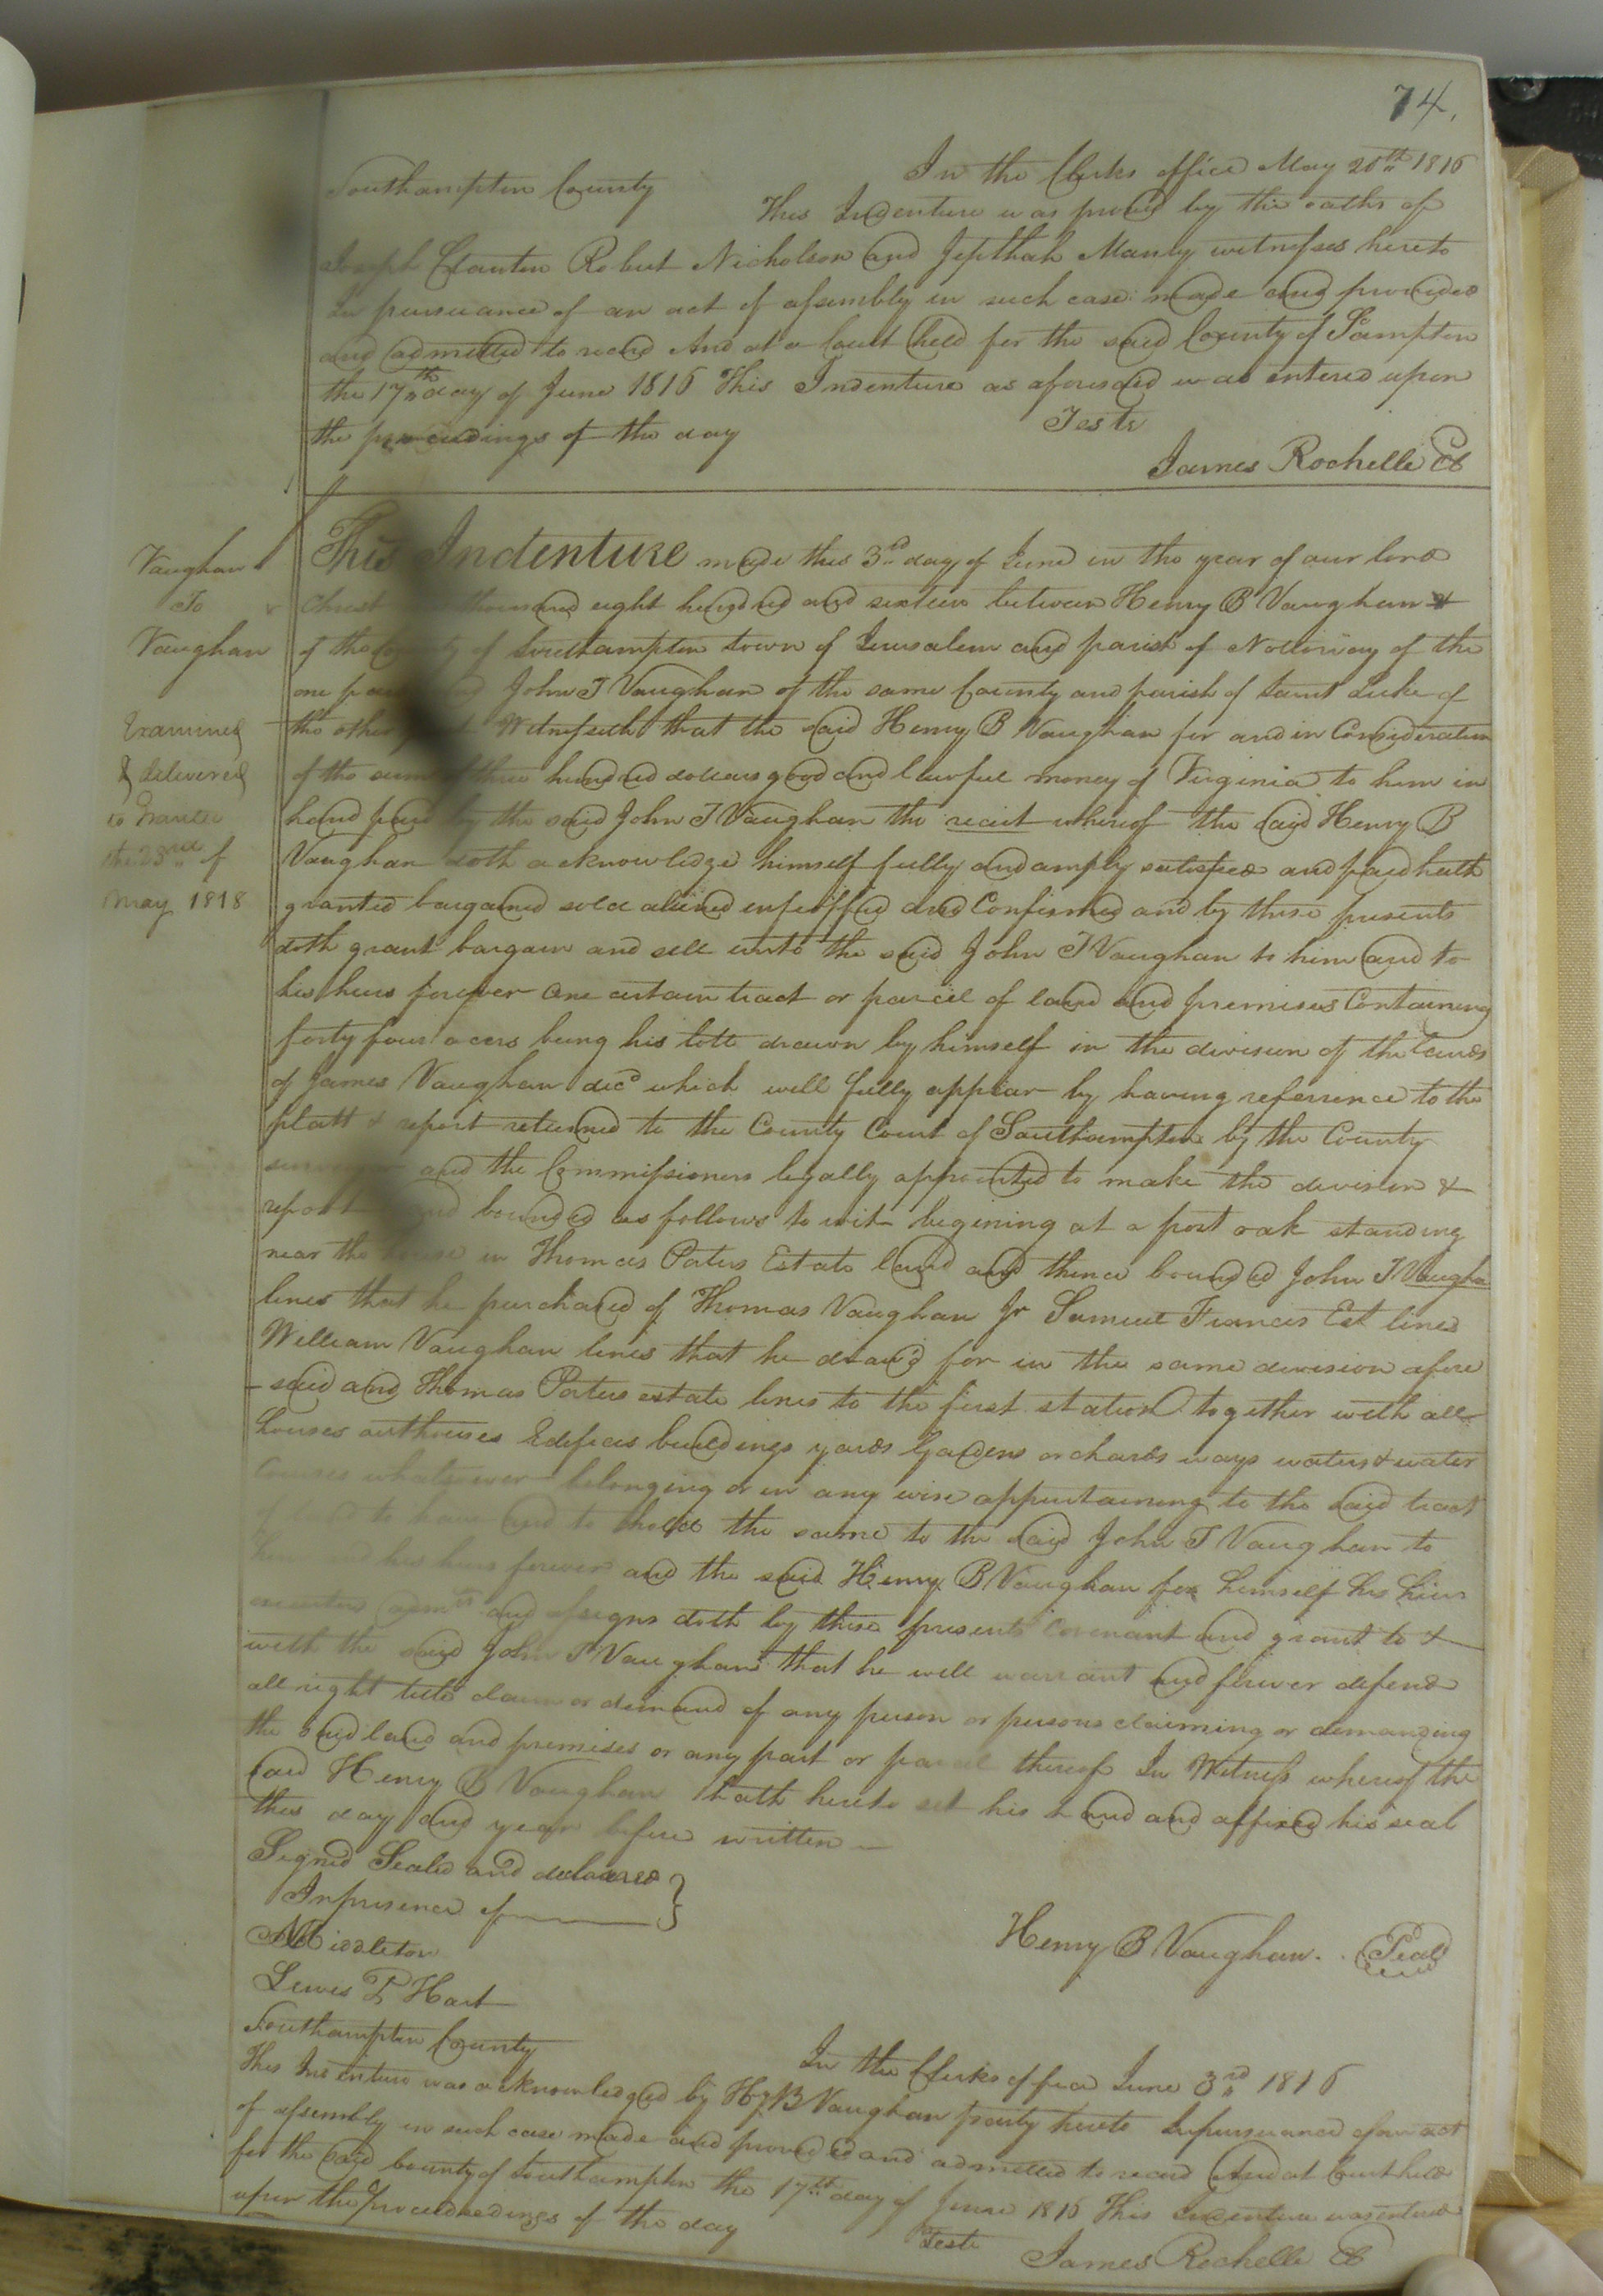 74.
Southampton County In the Clerks office May 20th 1816
This Indenture was proved by the oaths of
Joseph Claunton Robert Nicholson and Jepthah Manly witnesses hereto
In pursuance of an act of assembly in such case made and provided
and admitted to record And at a Court held for the said County of S'ampton
the 17th day of June 1816 This Indenture as aforesaid was entered upon
the proceedings of the day Teste
James Rochelle Cl
Vaughan
To
Vaughan
Examined
& delivered
to
the 23rd of
May 1818
This Indenture made this 3rd day of June in the year of our lord
Christ thousand eight hundred and sixteen between Henry B Vaughan
of the County of Southampton town of Jerusalem and parish of Nottoway of the
one part and John T Vaughan of the same County and parish of Saint Luke of
the other part Witnesseth that the said Henry B Vaughan for and in Consideration
of the sum of three hundred dollars good and lawful money of Virginia to him in
hand paid by the said John T Vaughan the reciet whereof the said Henry B
Vaughan doth acknowledge himself fully and amply satisfied and paid hath
granted bargained sold aliened enfeoffed and Confirmed and by these presents
doth grant bargain and sell unto the said John T Vaughan to him and to
his heirs forever One certain tract or parcel of land and premises Containing
forty four acers being his lott drawn by himself in the division of the lands
of James Vaughan decd which will fully appear by having referrence to the
platt & report returned to the County Court of Southampton by the County
surveyor and the Commissioners legally appointed to make the division &
report and bounded as follows to wit begining at a post oak standing
near the house in Thomas Porters Estate land and thence bounded John T Vaughn
lines that he purchased of Thomas Vaughan Jr Samuel Francis Est lines
William Vaughan lines that he draw'd for in the same devision afore
-said and Thomas Porters estate lines to the first station together with all
houses outhouses Edifices buildings yards Gardens orchards ways waters & water
Courses whatsoever belonging or in any wise appertaining to the said tract
of to have and to hold the same to the said John T Vaughan to
him and his heirs forever and the said Henry B Vaughan for himself his heirs
executors admrs and assigns doth by these presents Covenant and grant to &
with the said John T Vaughan that he will warrant and forever defend
all right title claim or demand of any person or persons claiming or demanding
the said land and premises or any part or parcel thereof In Witness whereof the
said Henry B Vaughan hath hereto set his hand and affixed his seal
this day and year before written
Signed Sealed and declared
In presence of
Middleton Henry B Vaughan Seal
Lewis T Hart
Southampton County In the Clerks office June 3rd 1816
This Indenture was acknowledged by Hy B Vaughan party hereto In pursuance of an act
of assembly in such case made and provided and admitted to record And at Court held
for the said County of Southampton the 17th day of June 1816 This Indenture was entered
upon the proceedings of the day Teste James Rochelle Cl